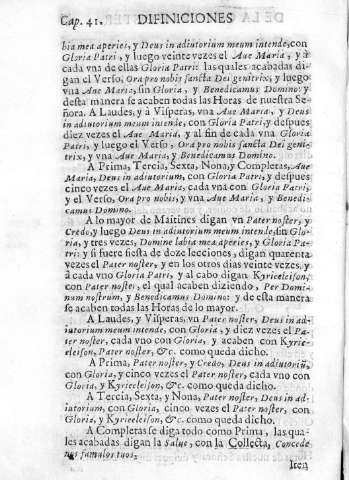 Cap. 41. DIFINICIONES
bia mea aperies, y Deus in adiutorium meum intende, con
Gloria Patri, y luego veinte vezes el Aue Maria, y à
cada vna de ellas Gloria Patri: las quales acabadas di-
gan el Verso, Ora pro nobis sancta Dei genitrix, y luego
vna Aue Maria, sin Gloria, y Benedicamus Domino: y
desta manera se acaben todas las Horas de nuestra Se-
ñora. A Laudes, y à Visperas, vna Aue Maria, y Deus
in adiutorium meum intende, con Gloria Patri, y despues
diez vezes el Aue Maria, y al fin de cada vna Gloria
Patri, y luego el Verso, Ora pro nobis sancta Dei geni-
trix, y vna Aue Maria, y Benedicamus Domino.
A Prima, Tercia, Sexta, Nona, y Completas, Aue
Maria, Deus in adiutorium, con Gloria Patri, y despues
cinco vezes el Aue Maria, cada vna con Gloria Patri,
y el Verso, Ora pro nobis, y vna Aue Maria, y Benedi-
camus Domino.
A lo mayor de Maitines digan vn Pater noster, y
Credo, y luego Deus in adiutorium meum intende, sin Glo-
ria, y tres vezes, Domine labia mea aperies, y Gloria Pa-
tri: y si fuere fiesta de doze lecciones, digan quarenta
vezes el Pater noster, y en los otros dias veinte vezes, y
à cada vno Gloria Patri, y al cabo digan Kyrieeleison,
con Pater noster, el qual acaben diziendo, Per Domi-
num nostrum, y Benedicamus Domino: y de esta manera
se acaben todas las Horas de lo mayor.
A Laudes, y Visperas, vn Pater noster, Deus in ad-
iutorium meum intende, con Gloria, y diez vezes el Pa-
ter noster, cada vno con Gloria, y acaben con Kyrie-
eleison, Pater noster, &c. como queda dicho.
A Prima, Pater noster, y Credo, Deus in adiutoriũ,
con Gloria, y cinco vezes el Pater noster, cada vno con
Gloria, y Kyrieeleison, &c. como queda dicho.
A Tercia, Sexta, y Nona, Pater noster, Deus in ad-
iutorium, con Gloria, cinco vezes el Pater noster, con
Gloria, y Kyrieeleison, &c. como queda dicho.
A Completas se diga todo como Prima, las qua-
les acabadas digan la Salue, con la Collecta, Concede
nos famulos tuos,
Iten